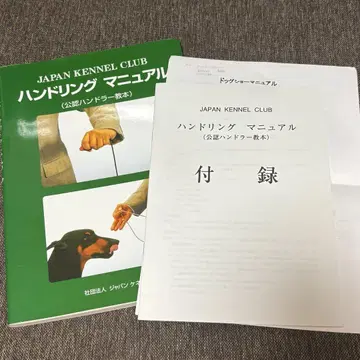 JAPAN KENNEL CLUB
ハンドリング マニュアル
(公認ハンドラー教本)
社団法人 ジャパン ケネ
ドッグショーマニュアル
JAPAN KENNEL CLUB
ハンドリング マニュアル
(公認ハンドラー教本)
付 録